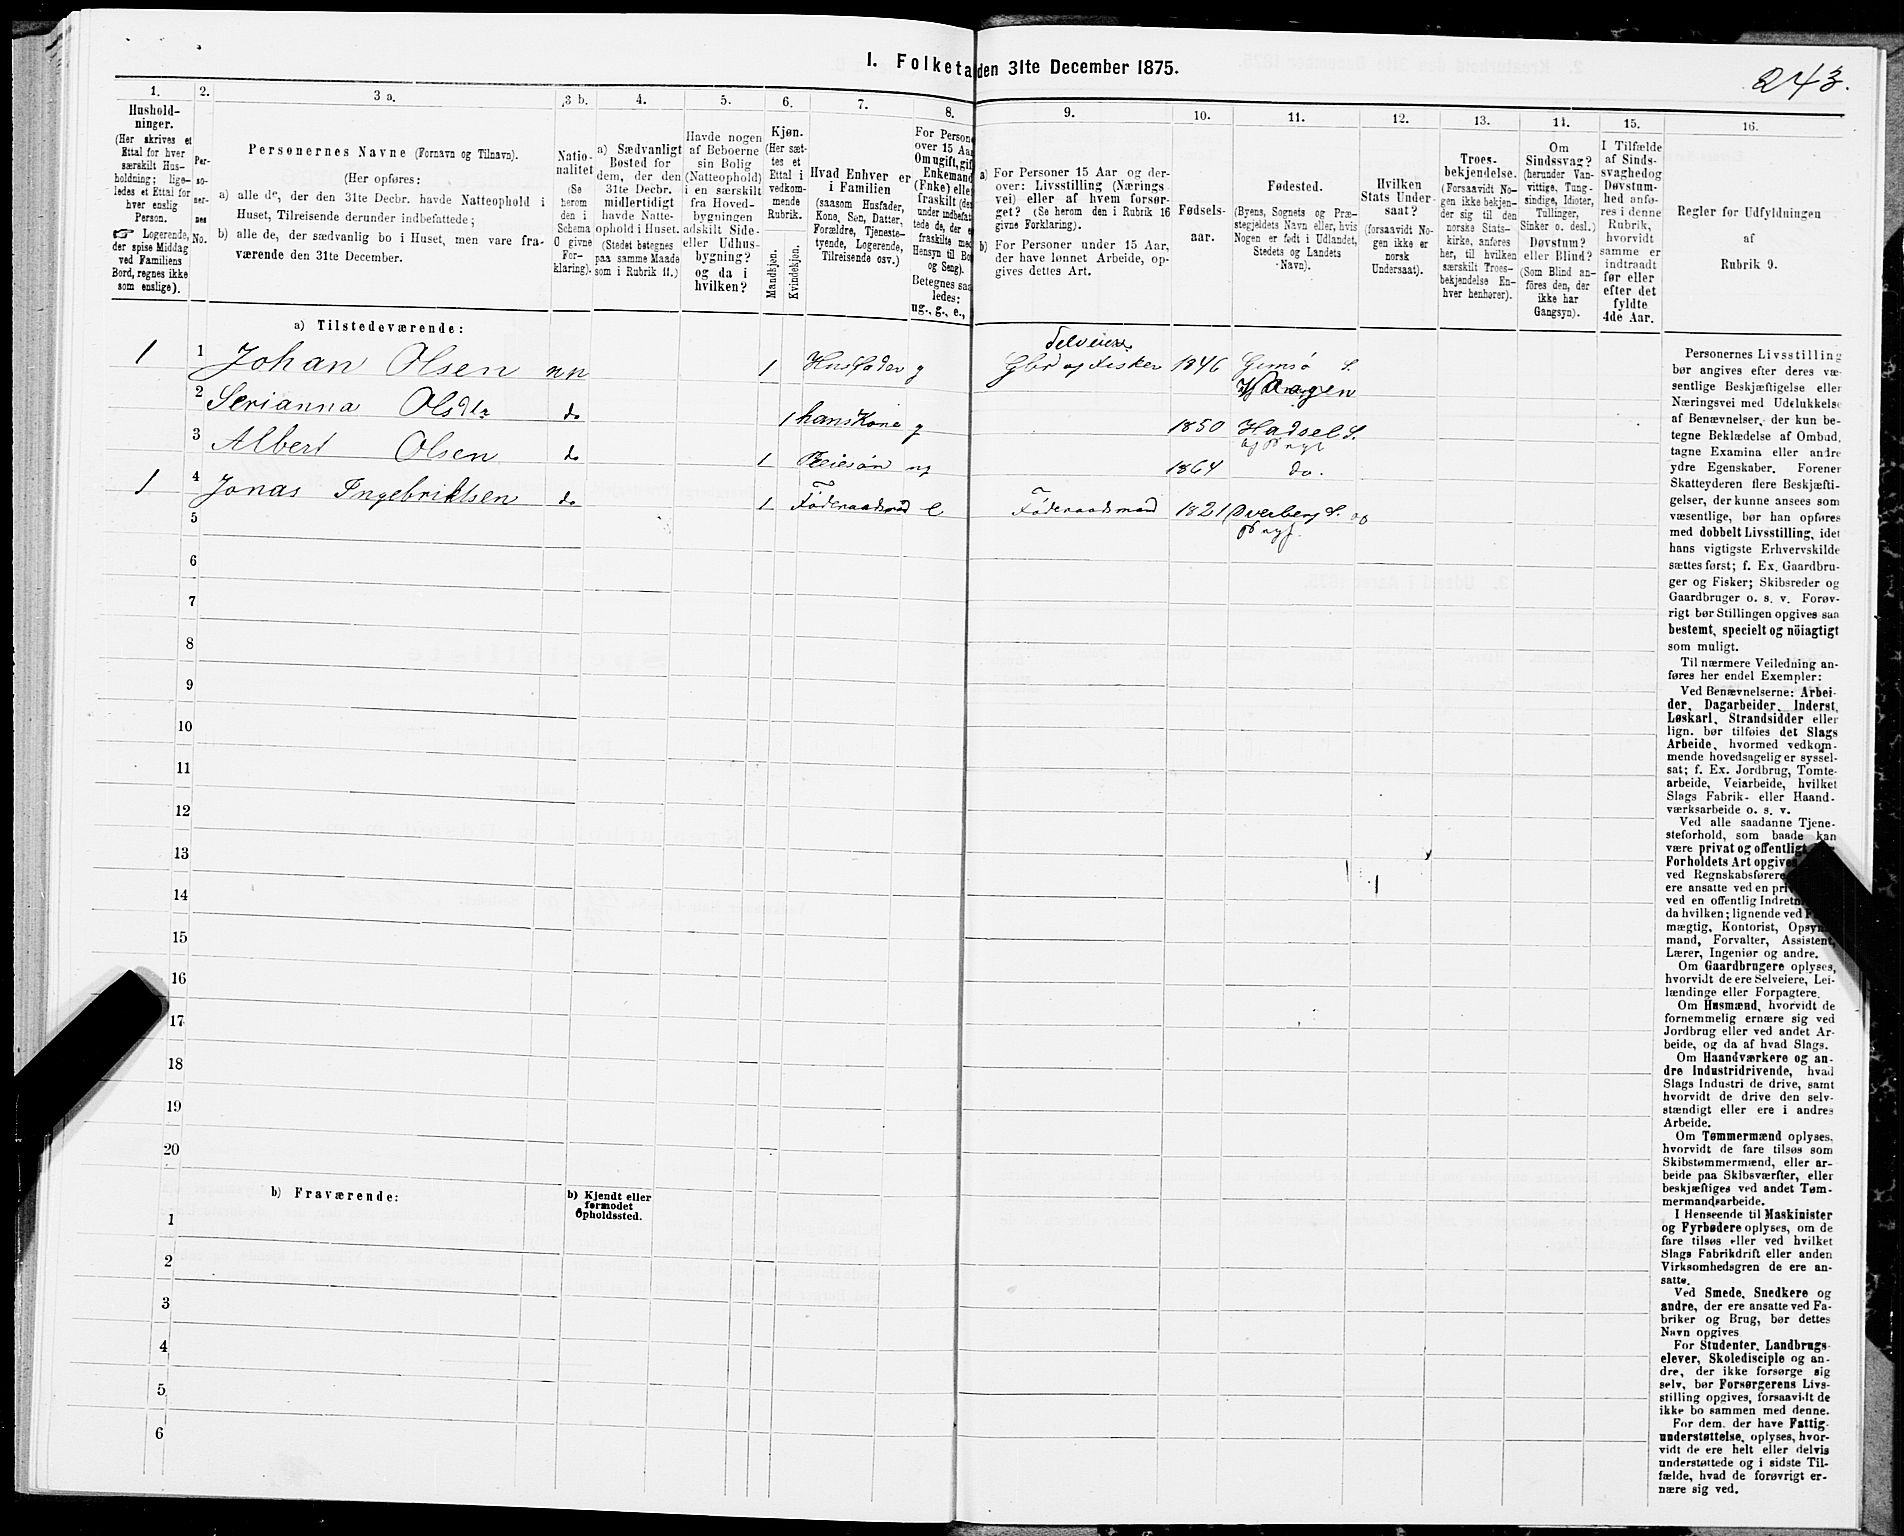 I. Folketa den 31te December 1875.
243.
1.
Hushold-
ninger.
(Her skrives et
Ettal for hver
særskilt Hus-
holdning; lige-
ledes et Ettal for
hver enslig
Person.
☞ Logerende,
der spise Middag
ved Familiens
Bord, regnes ikke
som enslige).
2.
Per-
so-
ner-
nes
No.
3 a.
Personernes Navne (Fornavn og Tilnavn).
(Her opføres:
a) alle de, der den 31te Decbr. havde Natteophold i
Huset, Tilreisende derunder indbefattede;
b) alle de, der sædvanlig bo i Huset, men vare fra-
værende den 31te December.
3 b.
Natio-
nalitet
(Se
herom
den i
Schema
O givne
For-
klaring).
4.
a) Sædvanligt
Bosted for
dem, der den
31te Decbr.
midlertidigt
havde Natte-
ophold i Huset.
(Stedet betegnes
paa samme Maade
som i Rubrik 11.)
5.
Havde nogen
af Beboerne
sin Bolig
(Natteophold)
i en særskilt
fra Hoved-
bygningen
adskilt Side-
eller Udhus-
bygning?
og da i
hvilken?
6.
Kjøn.
(Her sæt-
tes et
Ettal i
vedkom-
mende
Rubrik.
Mandkjøn.
Kvindekjøn.
7.
Hvad Enhver er
i Familien
(saasom Husfader,
Kone, Søn, Datter,
Forældre, Tjeneste-
tyende, Logerende,
Tilreisende osv.)
8.
For Persone
over 15 Aa
Om ugift, gif
Enkemand
(Enke) elle
fraskilt (de
under indbefat
tede de, der e
fraskilte med
Hensyn til Bo
og Seng).
Betegnes saa
ledes:
ug., g., e.,
9.
a) For Personer 15 Aar og der-
over: Livsstilling (Nærings-
vei) eller af hvem forsør-
get? (Se herom den i Rubrik 16
givne Forklaring).
b) For Personer under 15 Aar,
der have lønnet Arbeide, op-
gives dettes Art.
10.
Fødsels-
aar.
11.
Fødested.
(Byens, Sognets og Præ-
stegjeldets Navn eller, hvis
Nogen er født i Udlandet,
Stedets og Landets
Navn).
12.
Hvilken
Stats Under-
saat?
(forsaavidt No-
gen ikke er
norsk
Undersaat).
13.
Troes-
bekjendelse.
(Forsaavidt No-
gen ikke bekjen-
der sig til den
norske Stats-
kirke, anføres
her, til hvilken
særskilt Troes-
bekjendelse En-
hver henhører).
14.
Om
Sindssvag?
(herunder Van-
vittige, Tung-
sindige, Idioter,
Tullinger,
Sinker o. desl.)
Døvstum?
eller Blind?
(Som Blind an-
föres den, der
ikke har
Gangsyn).
15.
I Tilfælde
af Sinds-
svaghed og
Døvstum-
hed anfø-
res i denne
Rubrik,
hvorvidt
samme er
indtraadt
før eller
efter det
fyldte
4de Aar.
16.
Regler for Udfyldningen
af
Rubrik 9.
a) Tilstedeværende:
Selveier
1 1 Johan Olsen nn 1 Husfader g Gbr og Fisker 1846 Gimsø S.
Vaagen
2 Serianna Olsdtr do 1 hans Kone g 1850 Hadsel S.
og Prgj
3 Albert Olsen do 1 Pleiesøn ug 1864 do.
1 4 Jonas Ingebriktsen do 1 Føderaadsmd e Føderaadsmand 1821 Øverberg S. og
Prgj.
5
6
7
8
9
10
11
12
13
14
15
16
17
18
19
20
b) Fraværende:
b) Kjendt eller
formodet
Opholdssted.
1
2
3
4
5
6
Personernes Livsstilling
bør angives efter deres væ-
sentlige Beskjæftigelse eller
Næringsvei med Udelukkelse
af Benævnelser, der kun be-
tegne Beklædelse af Ombud,
tagne Examina eller andre
ydre Egenskaber. Forener
Skatteyderen flere Beskjæfti-
gelser, der kunne ansees som
væsentlige, bør han opføres
med dobbelt Livsstilling, idet
hans vigtigste Erhvervskilde
sættes først; f. Ex. Gaardbru-
ger og Fisker; Skibsreder og
Gaardbruger o. s. v. Forøv-
rigt bør Stillingen opgives saa
bestemt, specielt og nöiagtigt
som muligt.
Til nærmere Veiledning an-
føres her endel Exempler:
Ved Benævnelserne: Arbei-
der, Dagarbeider, Inderst,
Løskarl, Strandsidder eller
lign. bør tilføies det Slags
Arbeide, hvormed vedkom-
mende hovedsagelig er syssel-
sat; f. Ex. Jordbrug, Tomte-
arbeide, Veiarbeide, hvilket
Slags Fabrik- eller Haand-
værksarbeide o. s. v.
Ved alle saadanne Tjene-
steforhold, som baade kan
være privat og offentligt
Forholdets Art opgives
ved Regnskabsførere
ere ansatte ved en pri
ved en offentlig Indretn
da hvilken; lignende ved F
mægtig, Kontorist, Opsyn
mand, Forvalter, Assistent,
Lærer, Ingeniør og andre.
Om Gaardbrugere oplyses,
hvorvidt de ere Selveiere, Lei-
lændinge eller Forpagtere.
Om Husmænd, hvorvidt de
fornemmelig ernære sig ved
Jordbrug eller ved andet Ar-
beide, og da af hvad Slags.
Om Haandværkere og an-
dre Industridrivende, hvad
Slags Industri de drive, samt
hvorvidt de drive den selv-
stændigt eller ere i andres
Arbeide.
Om Tømmermænd oplyses,
hvorvidt de fare tilsøs som
Skibstømmermænd, eller ar-
beide paa Skibsværfter, eller
beskjæftiges ved andet Tøm-
mermandsarbeide.
I Henseende til Maskinister
og Fyrbødere oplyses, om de
fare tilsøs eller ved hvilket
Slags Fabrikdrift eller anden
Virksomhedsgren de ere an-
satte.
Ved Smede, Snedkere og
andre, der ere ansatte ved Fa-
briker og Brug, bør dettes
Navn opgives
For Studenter, Landbrugs-
elever, Skoledisciple og an-
dre, der ikke forsørge sig
selv, bør Forsørgerens Livs-
stilling opgives, forsaavidt de
ikke bo sammen med denne.
For dem, der have Fattig-
understøttelse, oplyses, hvor-
vidt de ere helt eller delvis
understøttede og i sidste Til-
fælde, hvad de forøvrigt er-
nære sig ved.